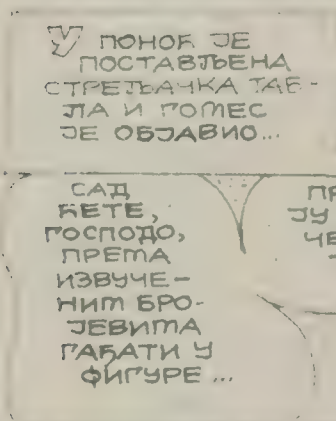 У ПОНОЋ ЈЕ
ПОСТАВЉЕНА
СТРЕЉАЧКА ТАБ-
ЛА И ГОМЕС
ЈЕ ОБЈАВИО...
САД
ЋЕТЕ,
ГОСПОДО,
ПРЕМА
ИЗВУЧЕ-
НИМ БРО-
ЈЕВИМА
ГАЂАТИ У
ФИГУРЕ...